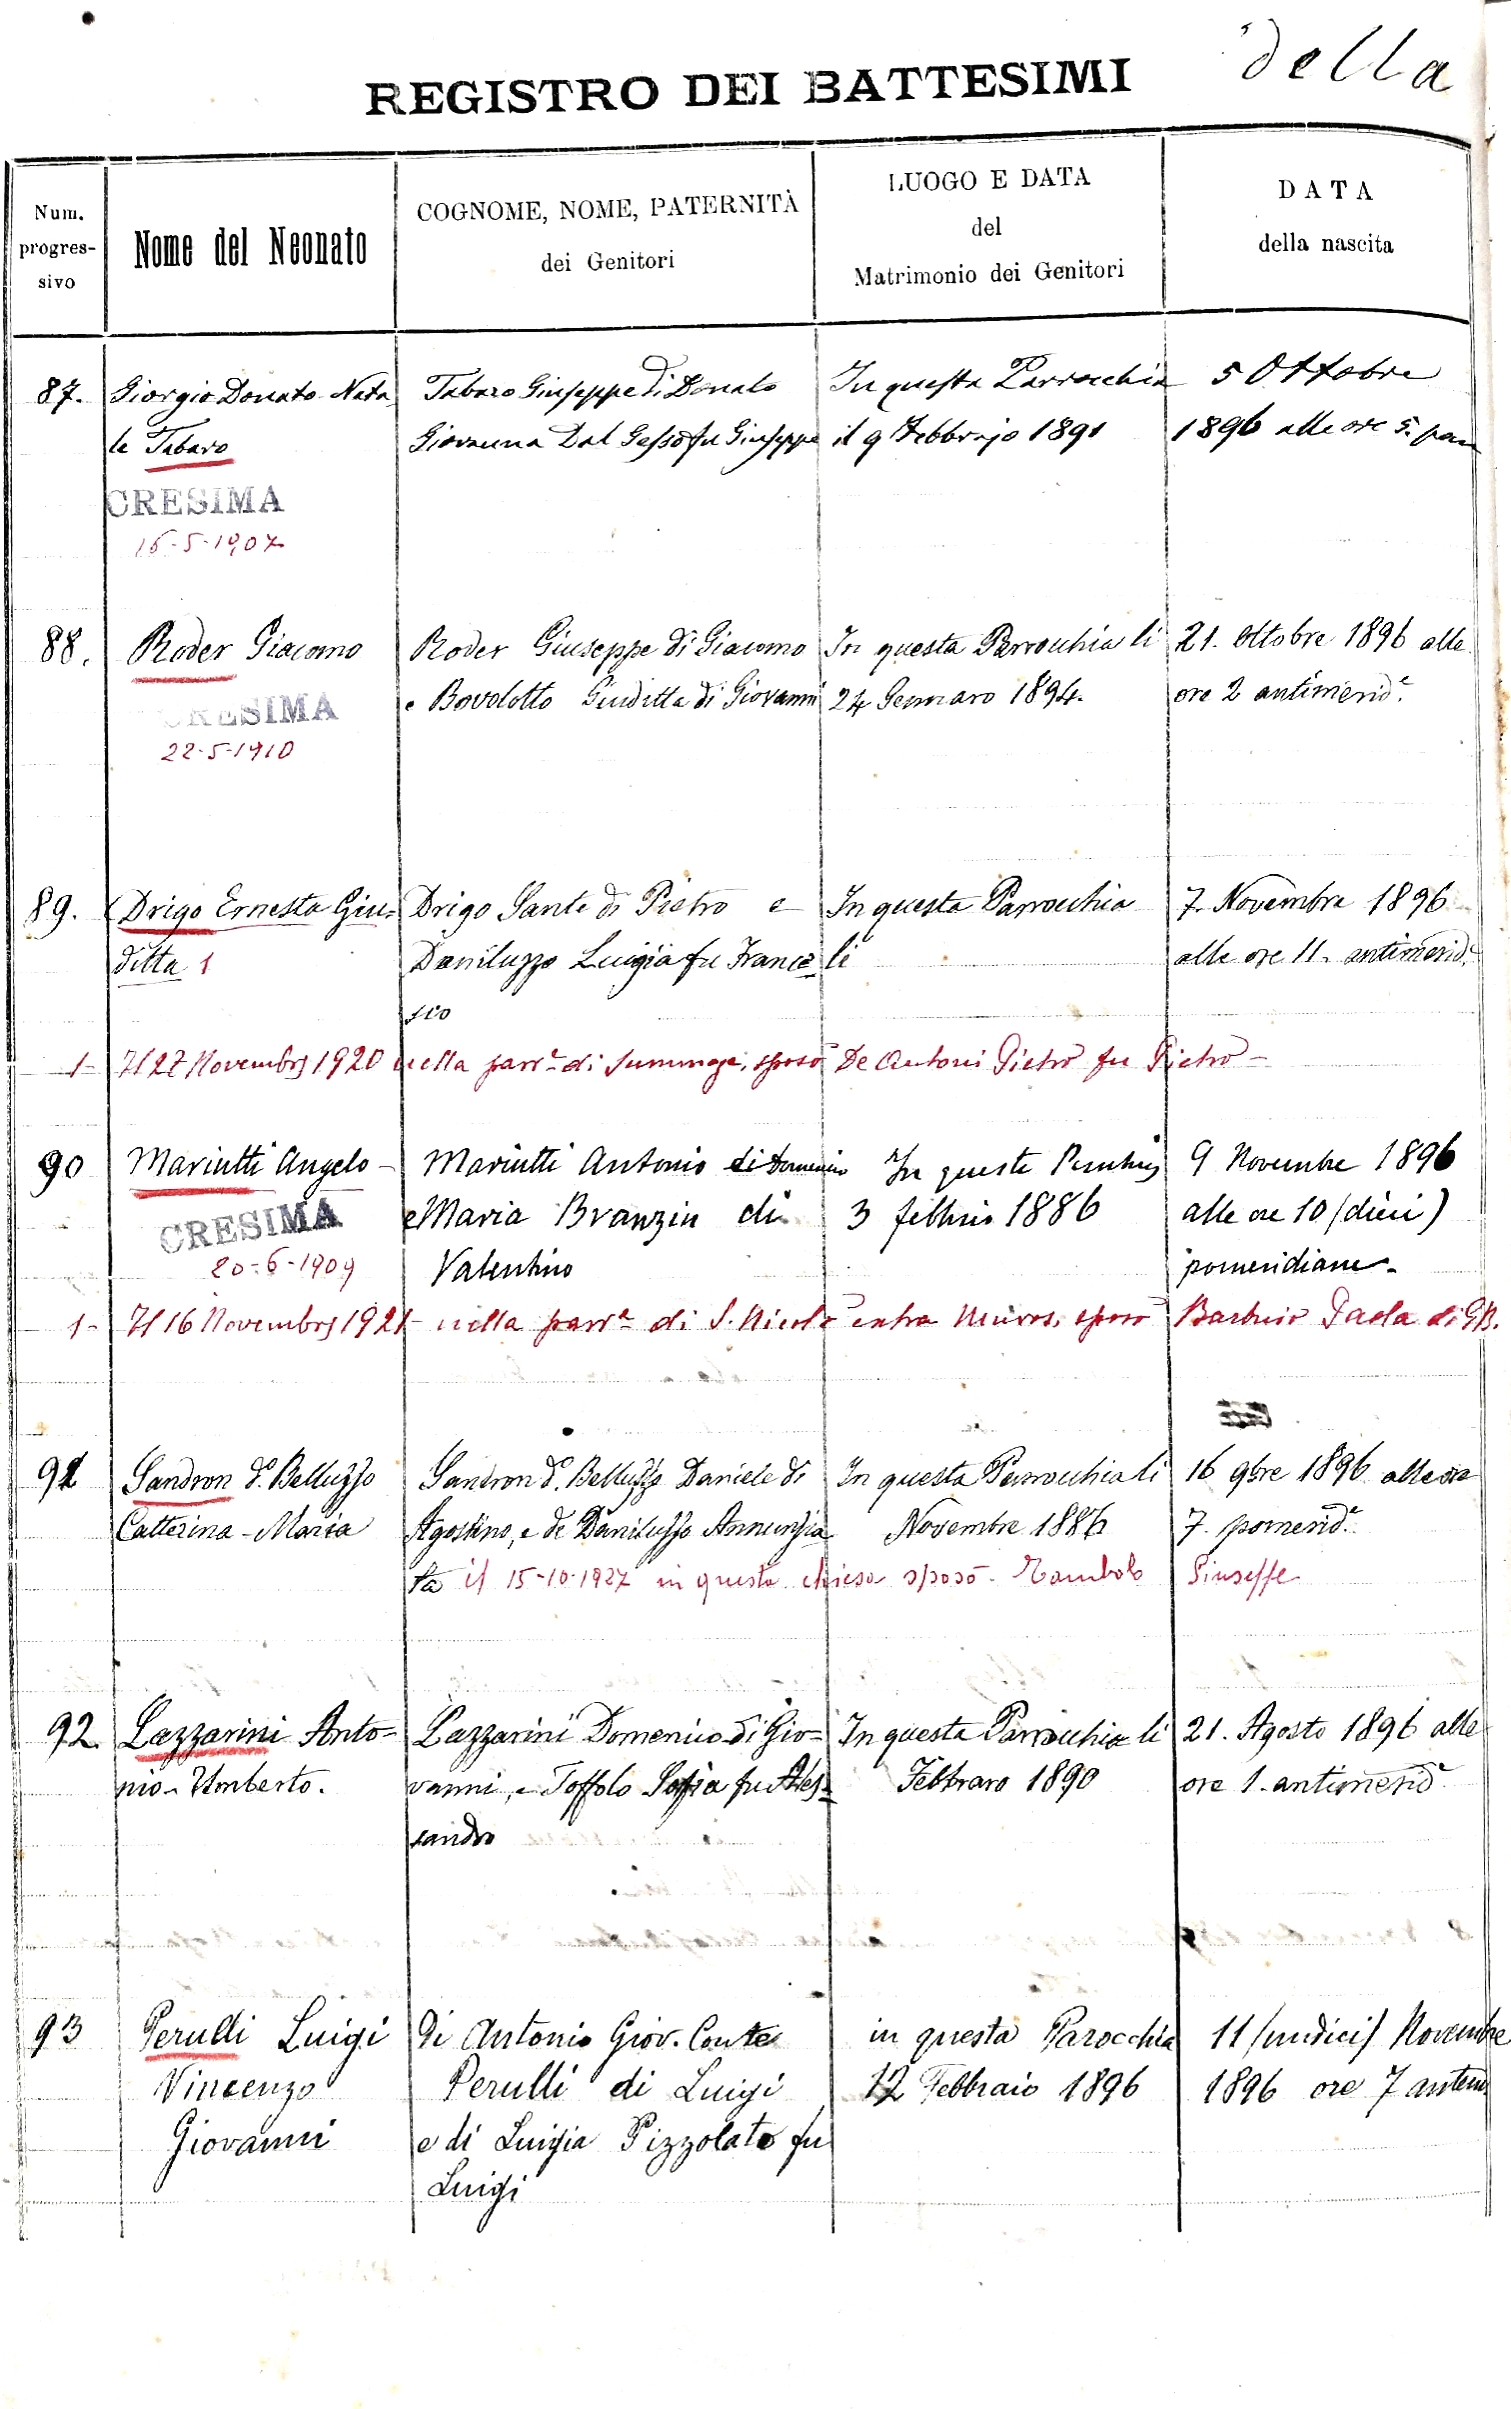 della
REGISTRO DEI BATTESIMI
Num.
progres-
sivo
Nome del Neonato
COGNOME, NOME, PATERNITÀ
dei Genitori
LUOGO E DATA
del
Matrimonio dei Genitori
DATA
della nascita
87.
Giorgio Donato Nata
le Tabaro
CRESIMA
15-5-1907
Tabaro Giuseppe di Donato
Giovanna Dal Gesso fu Giuseppe
In questa Parrocchia
il 9 Febbrajo 1891
5 Ottobre
1896 alle ore 5.
88.
Roder Giacomo
CRESIMA
22-5-1910
Roder Giuseppe di Giacomo
e Bovolotto Giuditta di Giovanni
In questa Parrochia li
24 Gennaro 1894.
21. Ottobre 1896 alle
ore 2 antimerid.e
89.
Drigo Ernesta Giu=
ditta 1
Drigo Sante di Pietro e
Daniluzzo Luigia fu France
sco
In questa Parrochia
li
7. Novembre 1896
alle ore 11. antimerid.e
1- Il 27 Novembre 1920 nella parr.a di Summaga, sposò De Antoni Pietro fu Pietro -
90
Mariutti Angelo -
CRESIMA
20-6-1909
Mariutti Antonio di Domenico
e Maria Branzin di
Valentino
In questa
3 febbrio 1886
9 Novembre 1896
alle ore 10 (dieci)
pomeridiane -
1- Il 16 Novembre 1921 - nella parr.a di S. Nicolò extra Muros, sposò Barbuio Paola di GB.
91
Sandron d.o Belluzzo
Catterina - Maria
Sandron d.o Belluzzo Daniele di
Agostino, e de Daniluzzo Annunzia
ta il 15-10-1927 in questa chiesa sposò - Zambolo Giuseppe
In questa Parrochia li
Novembre 1886
16 9bre 1896 alle ore
7. pomerid.e
92.
Lazzarini Anto-
nio - Umberto.
Lazzarini Domenico di Gio=
vanni, e Toffolo Sofia fu Ales=
sandro
In questa Parrochia li
Febbraro 1890
21. Agosto 1896 alle
ore 1. antimerid.e
93
Perulli Luigi
Vincenzo
Giovanni
di Antonio Giov. Conte
Perulli di Luigi
e di Luigia Pizzolato fu
Luigi
in questa Parocchia
12 Febbraio 1896
11 (undici) Novembre
1896 ore 7 antem